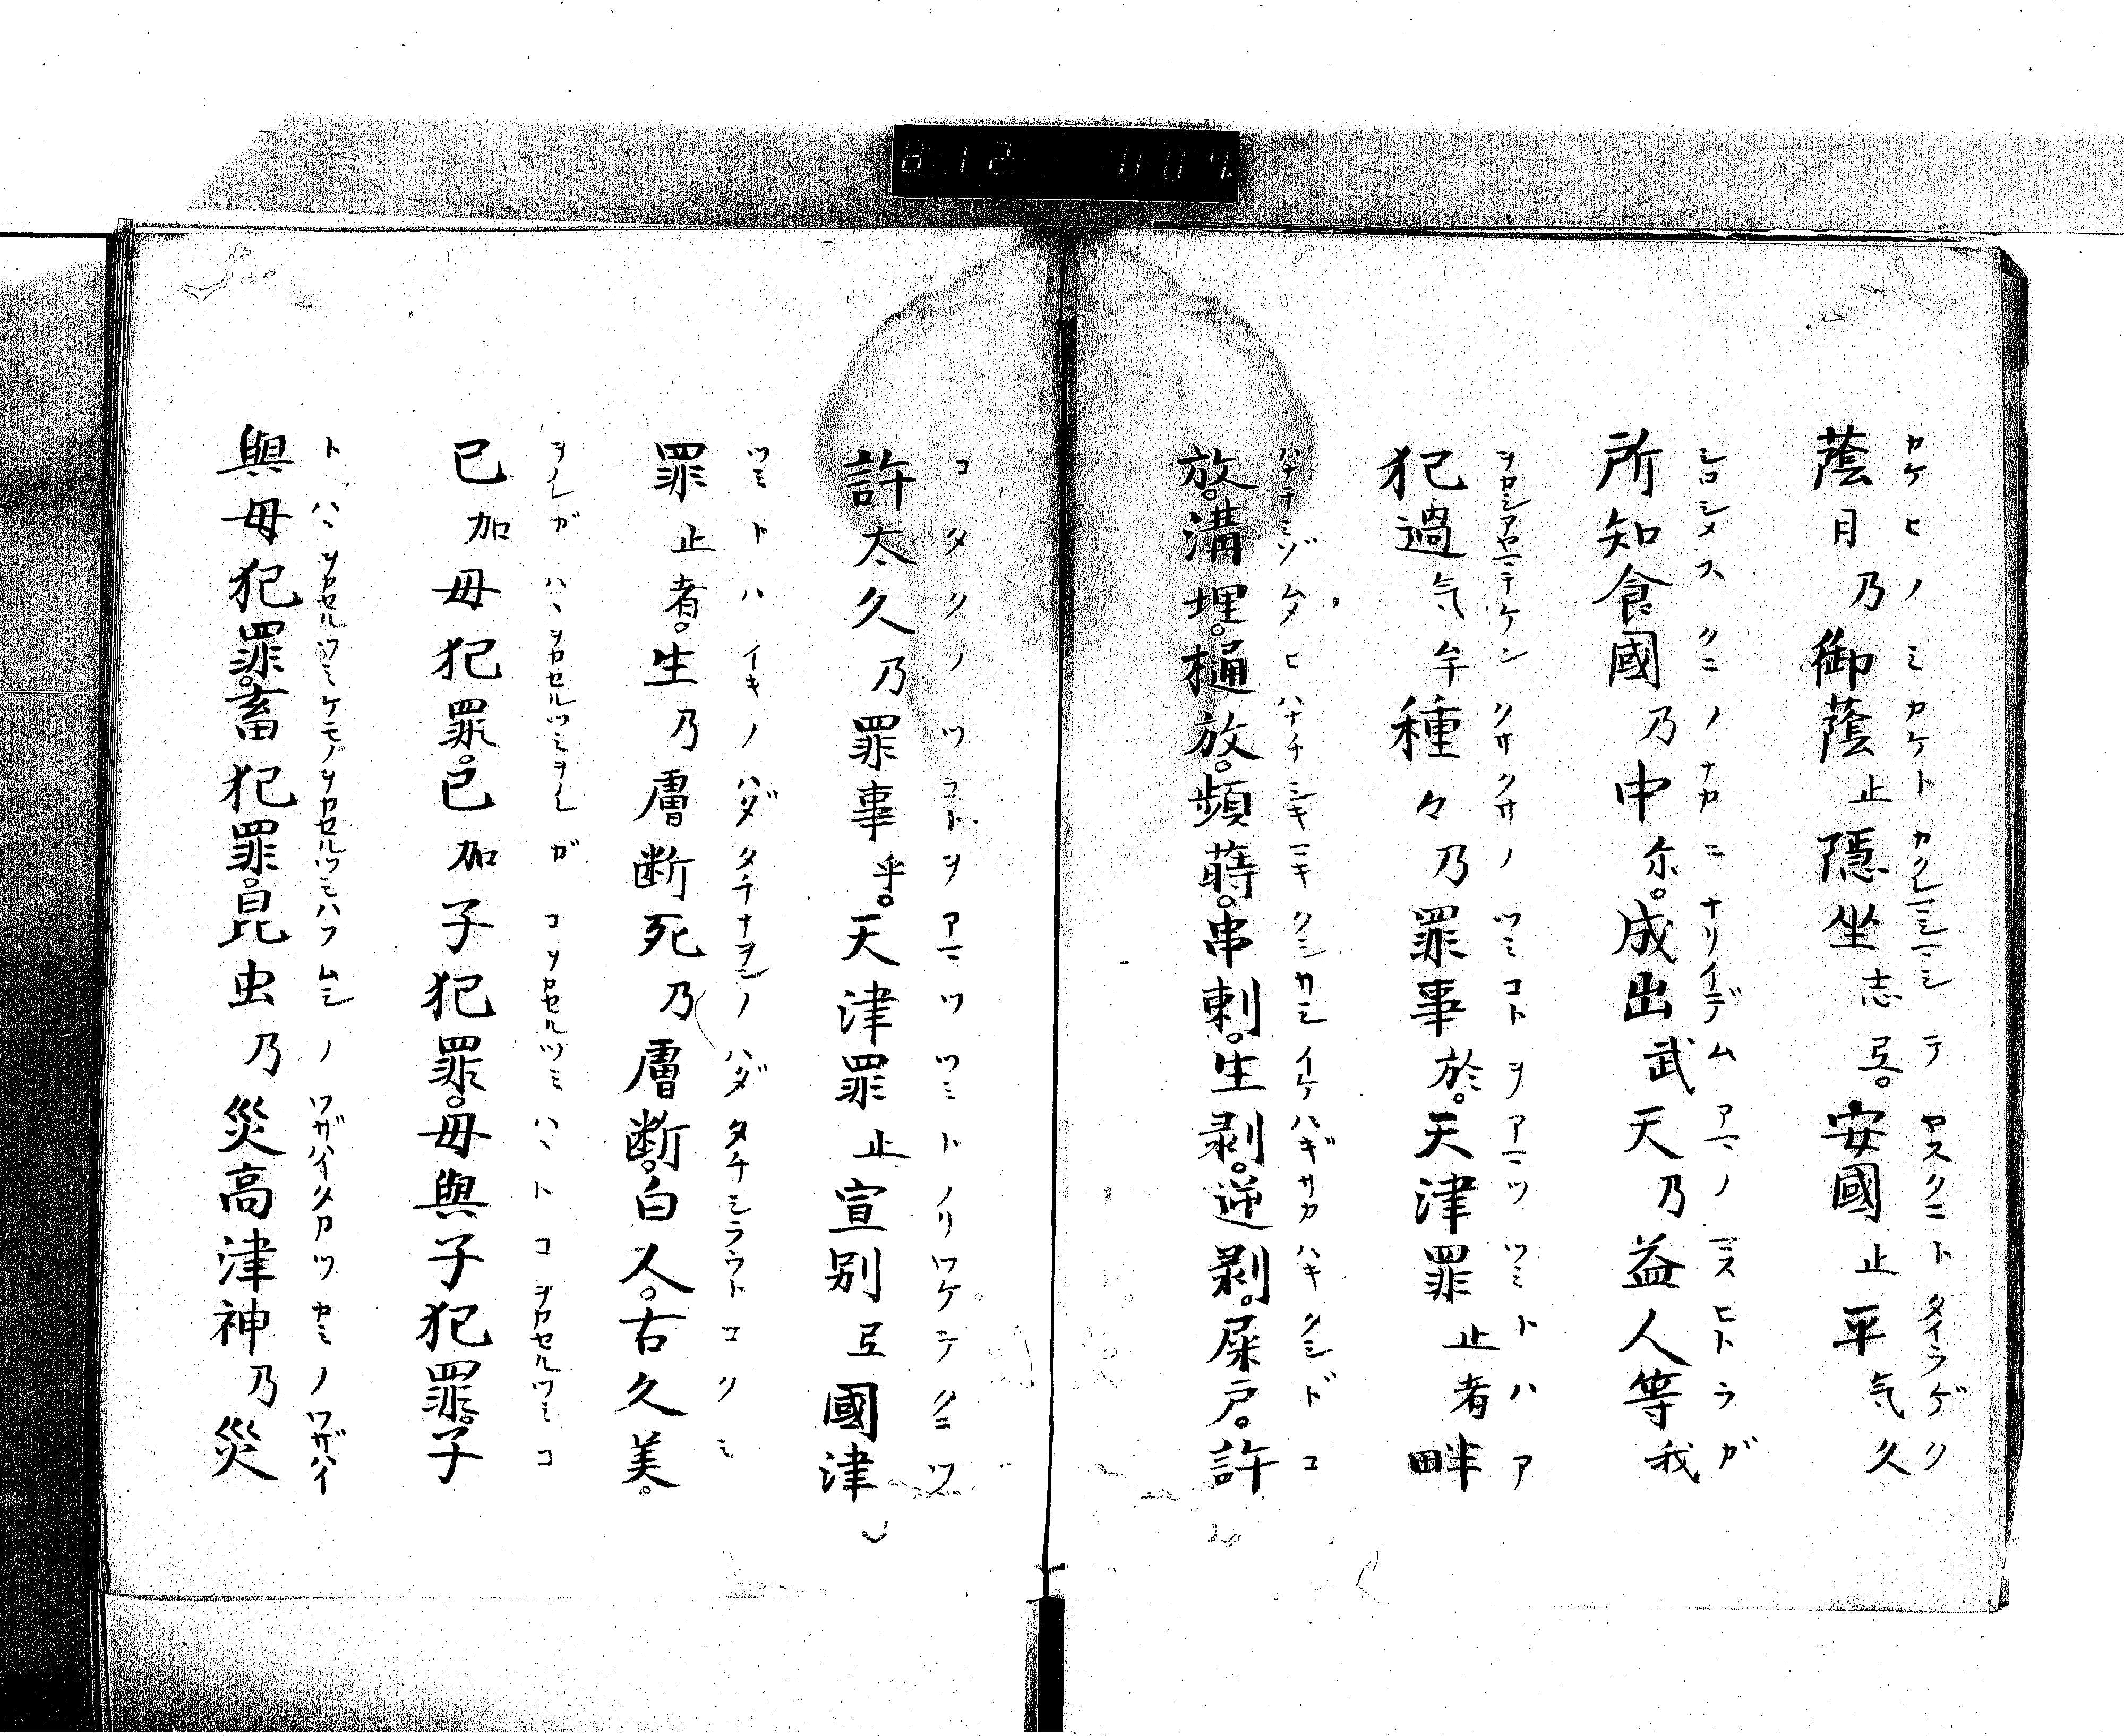 蔭日乃御蔭止隠坐志弖。安國止平気久
カケヒノミカケトカクレマシマシテヤスクニトタイラゲク
所知食國乃中尓。成出武天乃益人等我
シロシメスクニノナカニナリイデムアマノマスヒトラガ
犯過気牟種々乃罪事於。天津罪止者畔
ヲカシアヤマチケンクサクサノツミコトヲアマツツミトハア
放。溝埋。樋放。頻蒔。串刺。生剥。逆剥。屎戸。許
ハナチミゾムメヒハナチシキマキクシサシイケハギサカハキクシドコ
許太久乃罪事乎。天津罪止宣別弖國津
コタクノツコトヲアマツツミトノリワケテクニツ
罪止者。生乃膚断死乃膚断。白人。古久美。
ツミトハイキノハダタチナヲシノハダタチシラウトコクミ
己加母犯罪。己加子犯罪。母與子犯罪。子
ヲノレガハヽヲカセルツミヲノレガコヲカセルツミハヽトコヲカセルツミコ
與母犯罪。畜犯罪。昆虫乃災高津神乃災
トハヽヲカセルツミケモノヲカセルツミハフムシノワザハイタカツカミノワザハイ